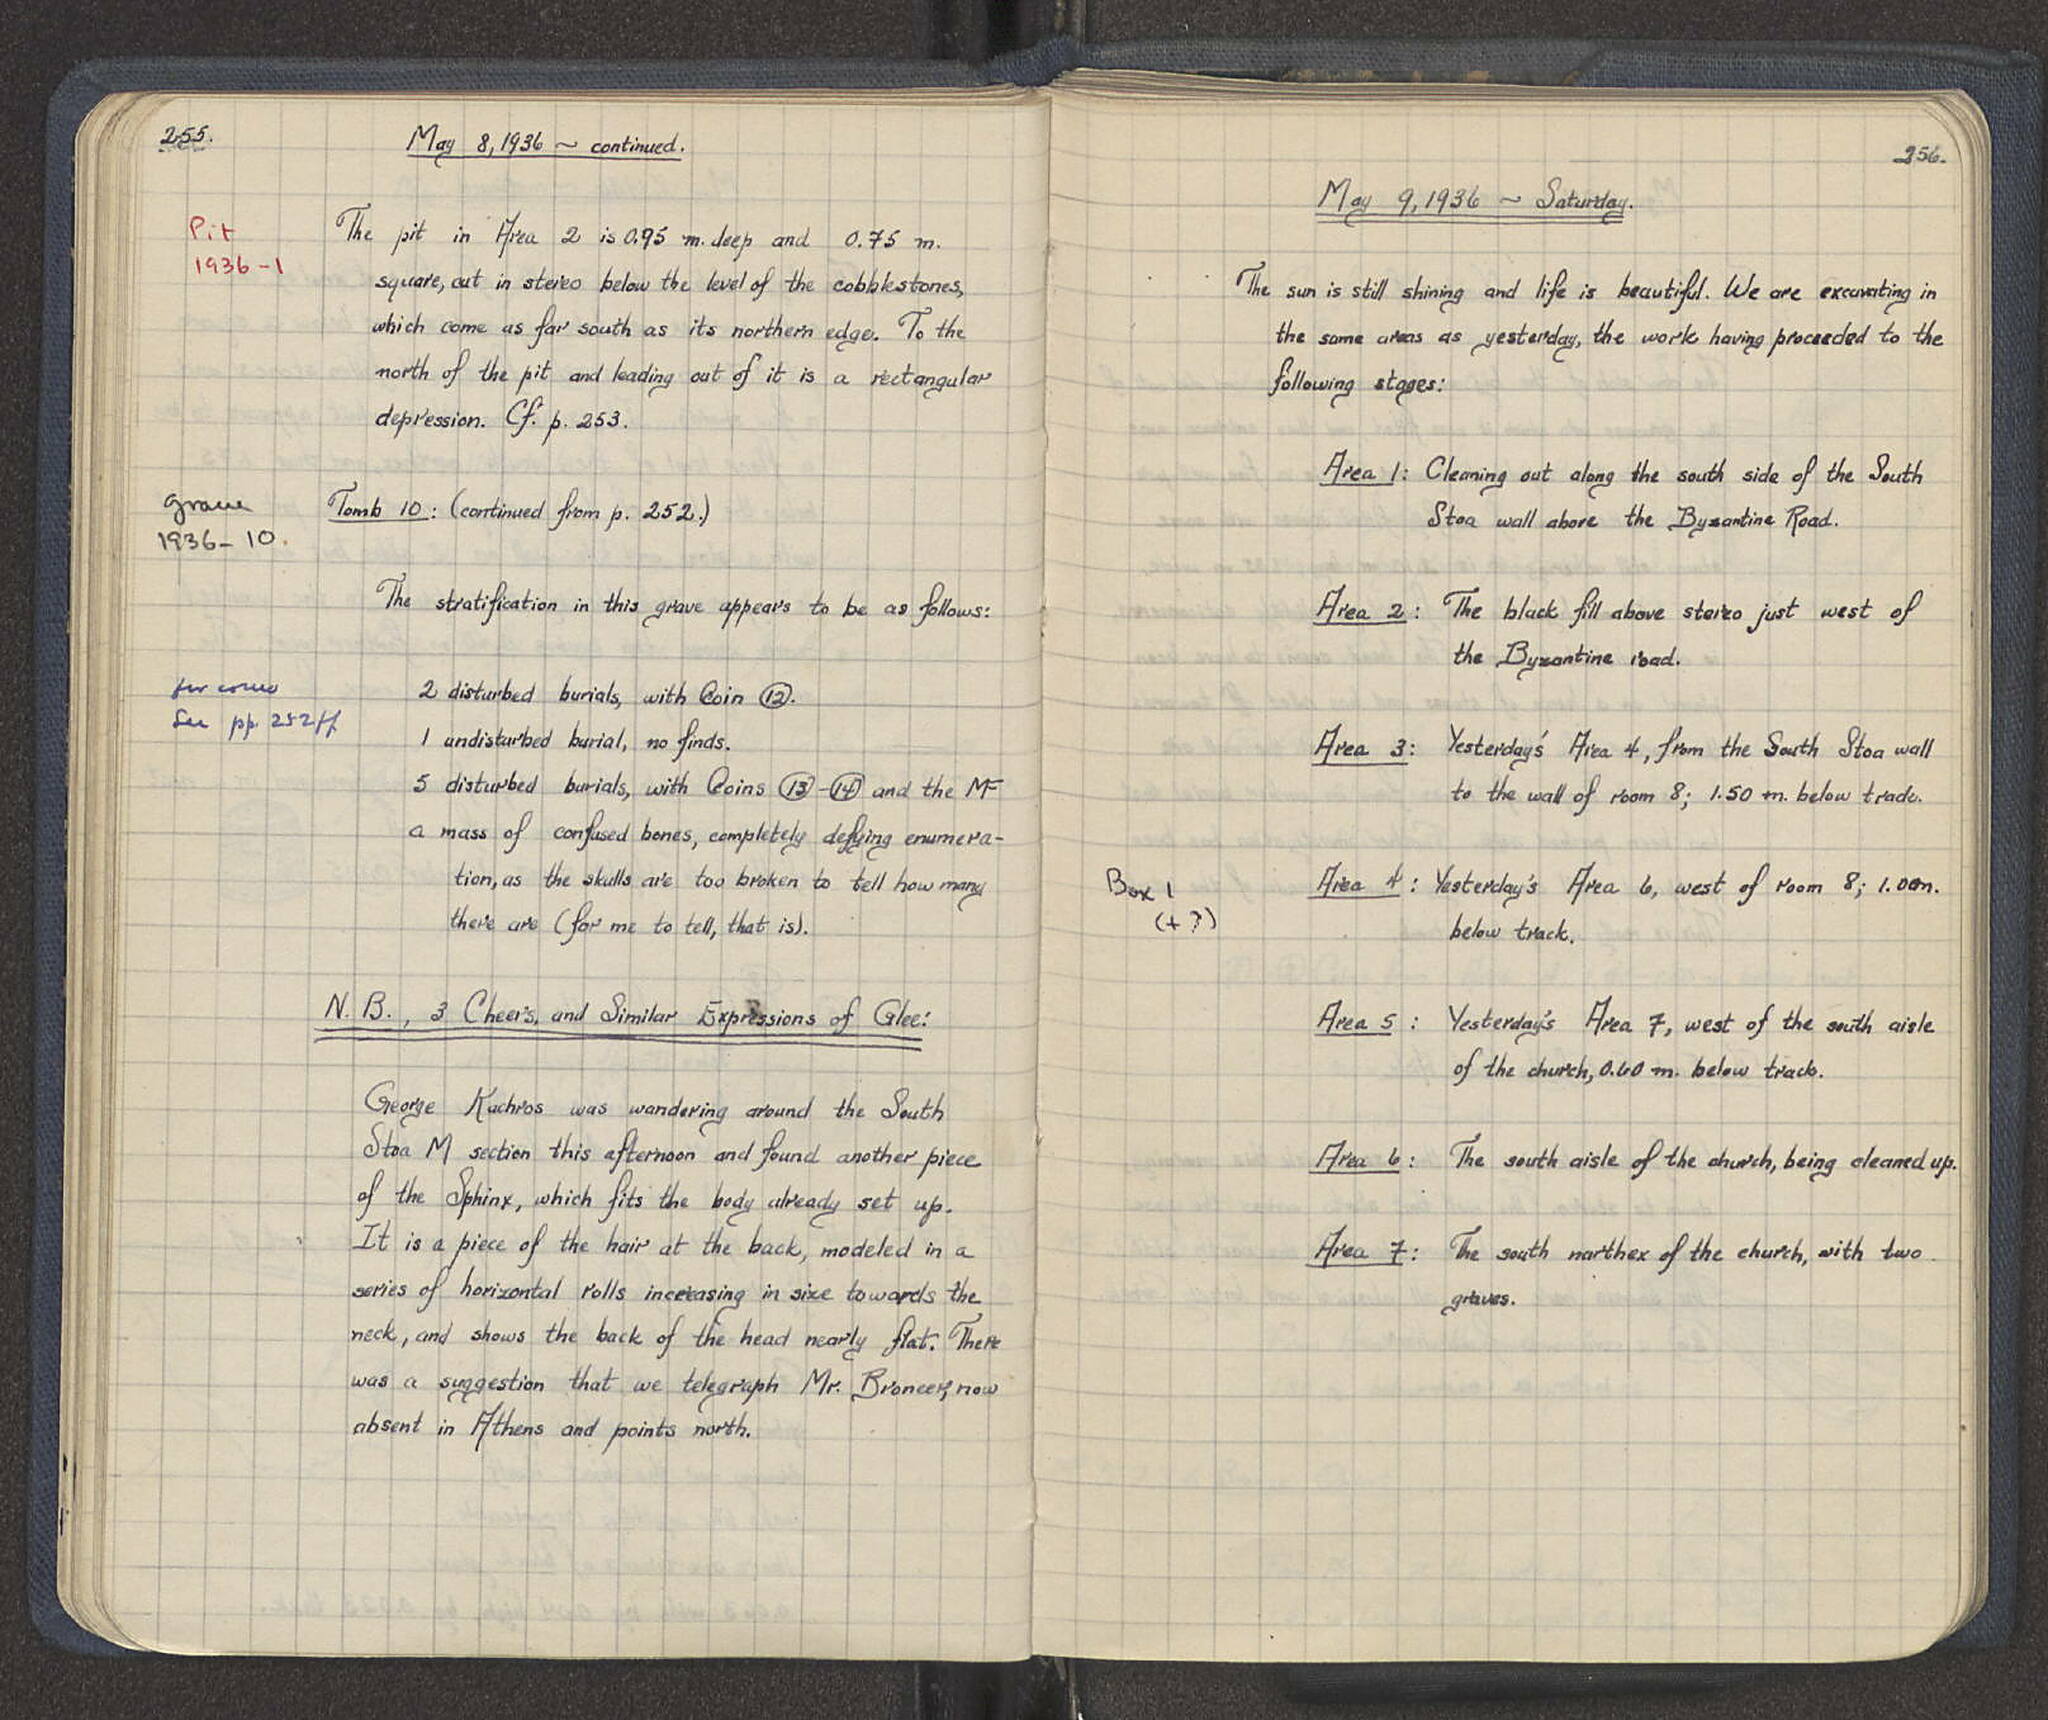 255.
May 8, 1936 ~ continued.
Pit
1936-1
The pit in Area 2 is 0.95 m. deep and 0.75 m.
square, cut in stereo below the level of the cobblestones,
which come as far south as its northern edge. To the
north of the pit and leading out of it is a rectangular
depression. Cf. p. 253.
grave
1936-10.
Tomb 10: (continued from p. 252.)
The stratification in this grave appears to be as follows:
for coins
See pp. 252ff
2 disturbed burials, with Coin 12.
1 undisturbed burial, no finds.
5 disturbed burials, with Coins 13-14 and the MF
a mass of confused bones, completely defying enumera-
tion, as the skulls are too broken to tell how many
there are (for me to tell, that is).
N.B., 3 Cheers, and Similar Expressions of Glee:
George Kachros was wandering around the South
Stoa M section this afternoon and found another piece
of the Sphinx, which fits the body already set up.
It is a piece of the hair at the back, modeled in a
series of horizontal rolls increasing in size towards the
neck, and shows the back of the head nearly flat. There
was a suggestion that we telegraph Mr. Broneer, now
absent in Athens and points north.
256.
May 9, 1936 ~ Saturday.
The sun is still shining and life is beautiful. We are excavating in
the same areas as yesterday, the work having proceeded to the
following stages:
Area 1: Cleaning out along the south side of the South
Stoa wall above the Byzantine Road.
Area 2: The black fill above stereo just west of
the Byzantine road.
Area 3: Yesterday's Area 4, from the South Stoa wall
to the wall of room 8; 1.50 m. below track.
Box 1
(+?)
Area 4: Yesterday's Area 6, west of room 8; 1.00m.
below track.
Area 5: Yesterday's Area 7, west of the south aisle
of the church, 0.60 m. below track.
Area 6: The south aisle of the church, being cleaned up.
Area 7: The south narthex of the church, with two
graves.